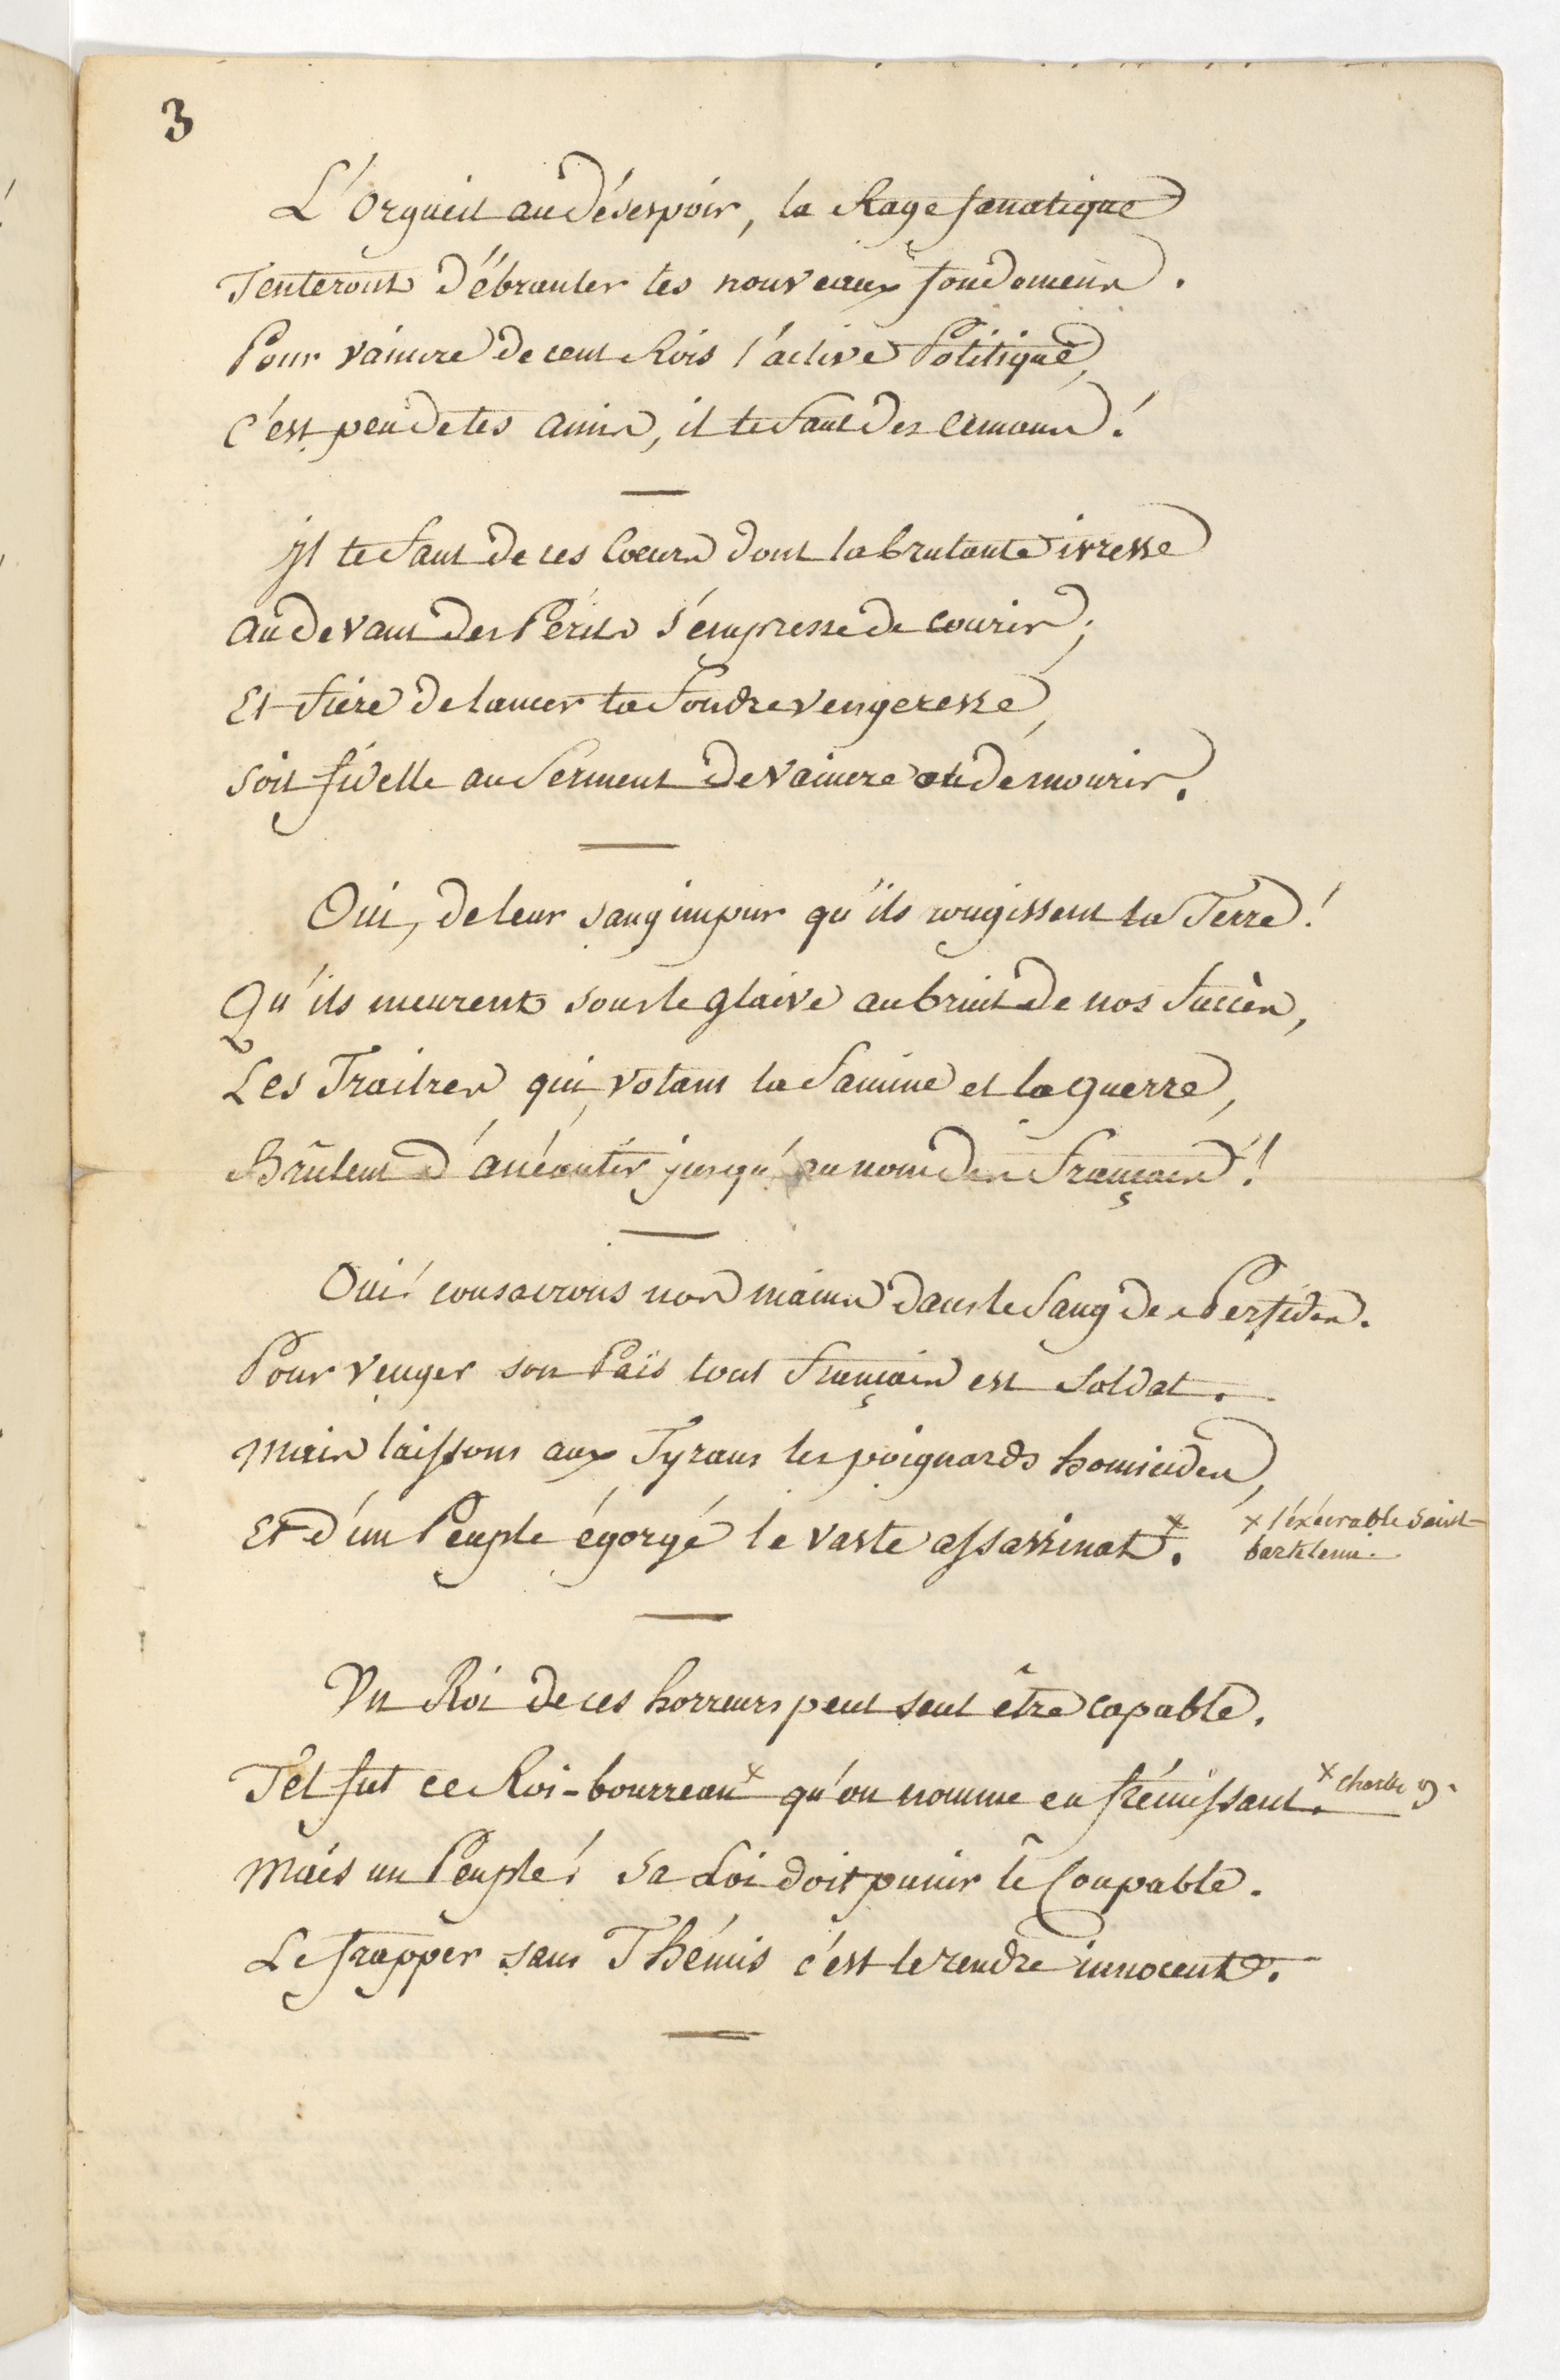 3
L'Orgueil au désespoir, la Rage fanatique
Tenteront d'ébranler tes nouveaux fondemens.
Pour vaincre de cent Rois l'active Politique,
C'est peu de tes amis, il te faut des amans!
Il te faut de ces Coeurs dont la brulante ivresse
au devant des Périls s'empresse de courir;
Et fière de lancer ta foudre vengeresse,
soit fidelle au Serment de vaincre ou de mourir.
Oui, de leur sang impur qu'ils rougissent la Terre!
Qu'ils meurent sous le glaive au bruit de nos succès,
Les Traitres qui, votant la famine et la guerre,
Brûlent d'anéantir jusqu'au nom des français!
Oui! consacrons nos mains dans le sang des Perfides.
Pour venger son Païs tout français est Soldat.
Mais laissons aux Tyrans les poignards homicides,
Et d'un Peuple égorgé le vaste assassinat x.
x l'éxécrable saint
barthlemi.
Un Roi de ces horreurs peut seul être capable.
Tel fut ce Roi-bourreau x qu'on nomme en frémissant.
x Charles 9.
Mais un Peuple! Sa Loi doit punir le Coupable.
Le frapper sans Thémis c'est le rendre innocent.